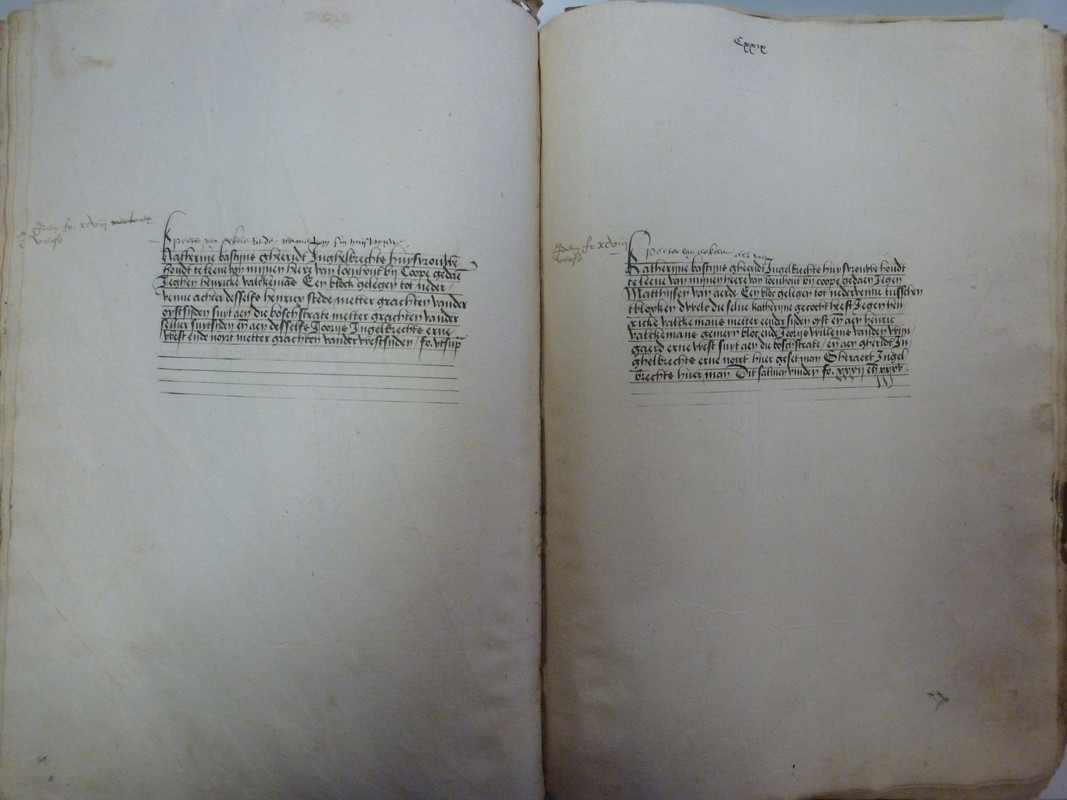 fo. xcviii
verso
Peeter van
Katherine bastyns gheeridt Inghelbrechts huysvrouwe
houdt te leene van mijnen heere van loenhout bij Coope gedaen
Jeghen henricke valckemans Een block gelegen tot neder
venne achter desselfs henricx stede metter grachten vander
oostsijden suyt aen die boschstrate metter grachten vander
selver suytsijden en aen desselfs Joorijs Ingelbrechts erve
west ende noirt metter grachten vander westsijden / fo. vts up
Cxxix
fo. xcviii
verso
Peeter van
Katherijne bastijns gheeridt Ingelbrechts huysvrouwe houdt
te leene van mijnen heere van loenhout bij coope gedaen Jegen
Matthijsen van aerde Een bloc gelegen tot nedervenne tusschen
tbleycken dwelc die selve katherijne gecocht heeft Jegen hen
ricke valckemans metter eender sijden oist en aen henric
valckemans gemeyn bloc ende Joorijs willems vanden wijn
gaerd erve west suyt aen die boschstrate / en aen gheridt In
ghelbrechts erve noirt hier geset man Gheraert Ingel
brechts hier man Dit salmen vinden fo. xxxij en xxxv